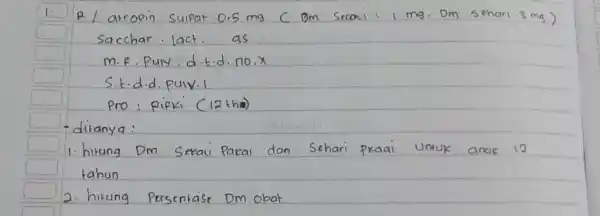 1. R / atropin sulfat 0.5 mg ( Dm Sekali : 1 mg. Dm sehari 3 mg )
Sacchar. lact. qs
m. f. pulv. d.t.d. no. x
S t.d.d. pulv. 1
Pro : Rifki (12 th)
ditanya :
1. hitung Dm Sekali Pakai dan Sehari pkaai untuk anak 12
tahun
2. hitung Persentase Dm obat